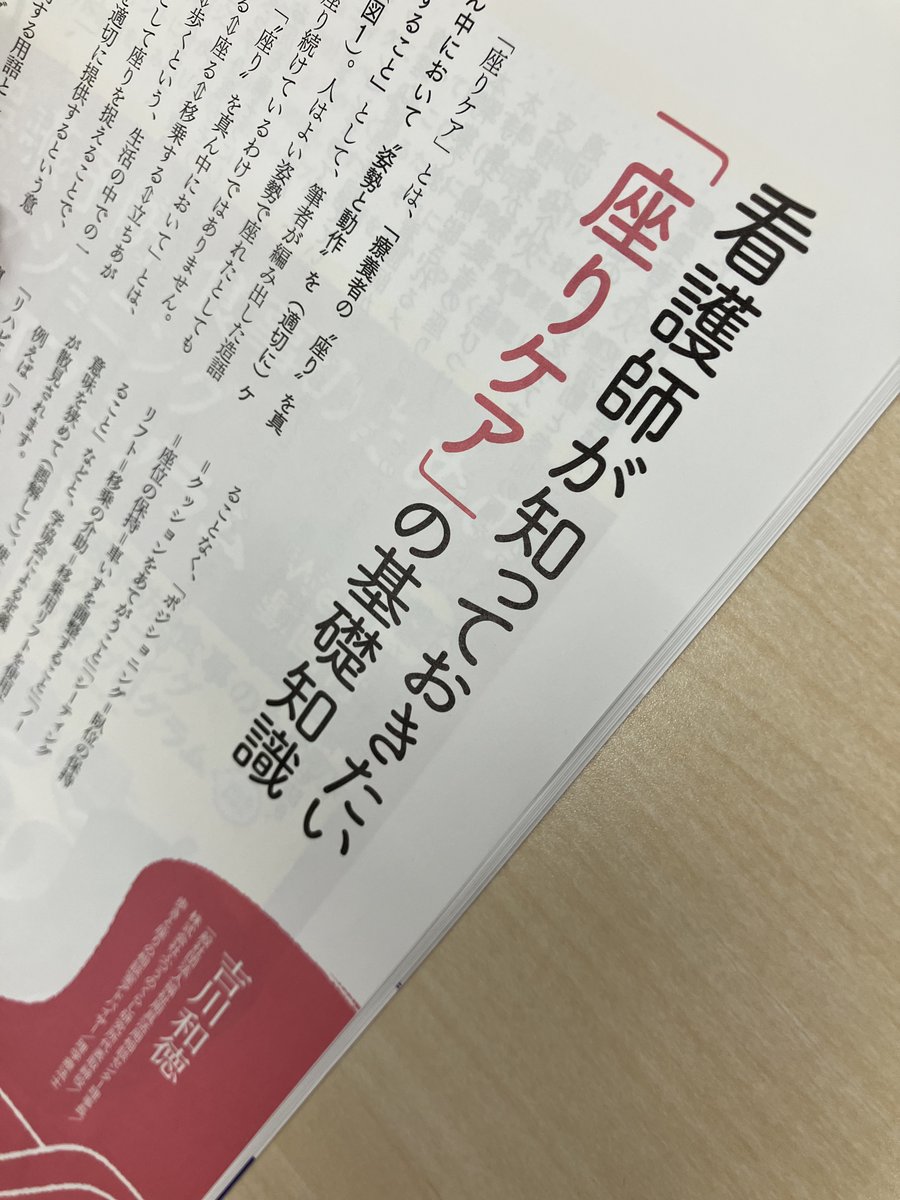 看護師が知っておきたい
「座りケア」の基礎知識
「座りケア」とは、「療養者の〝座り〟を真
ん中において〝姿勢と動作〟を(適切に)ケ
すること」として、筆者が編み出した造語
図1)。人はよい姿勢で座れたとしても
座り続けているわけではありません。
「〝座り〟を真ん中において」とは、
る⇔座る⇔移乗する⇔立ちあが
⇔歩くという、生活の中での一
として座りを捉えることで、
を適切に提供するという意
する用語と
ることなく、「ポジショニング=臥位の保持
=クッションをあてがうこと」「シーティング
=座位の保持=車いすを調整すること」「ノー
リフト=移乗の介助=移乗用リフトを使用す
ること」などと、学協会による定義
意味を狭めて(誤解して)、
が散見されます。
例えば「リハ
「リハビ
吉川和徳